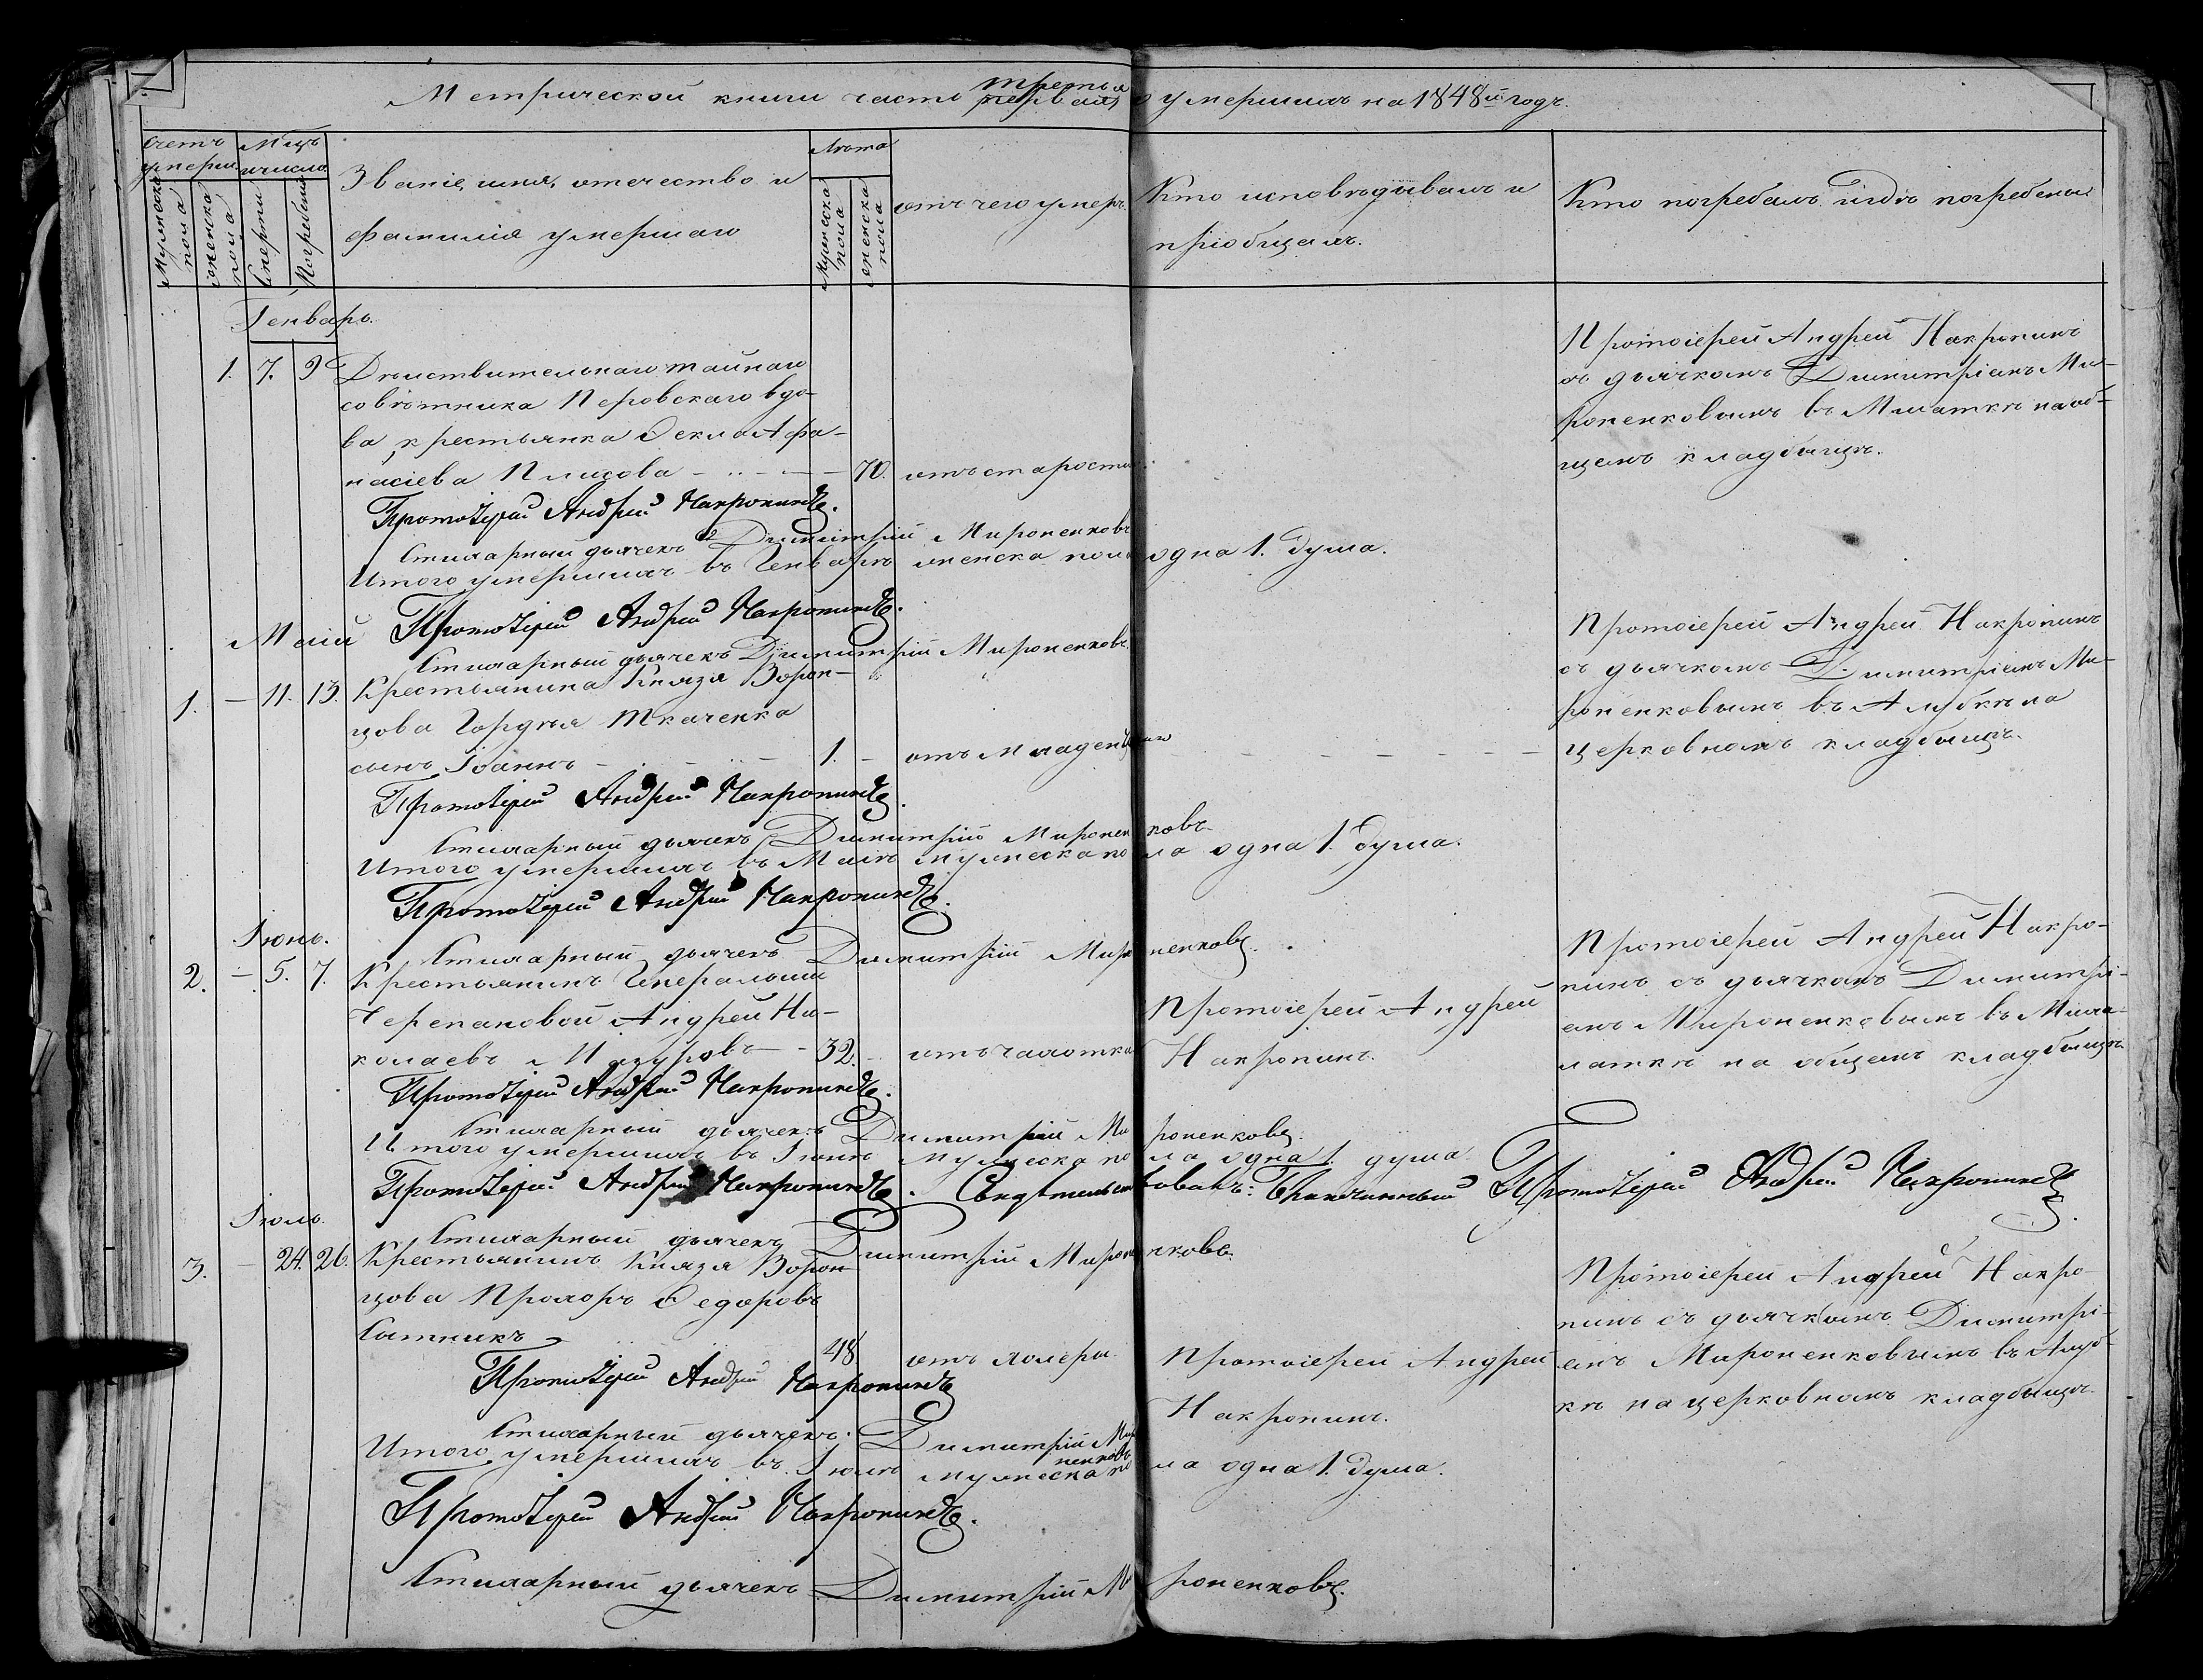 Метрической книги часть третья о умершихъ на 1848й годъ.
Счетъ умерш.
Мцъ и число
Мужеска пола
женска пола
Смерти
Погребенія
Званіе, имя, отечество и
фамилія умершаго
Лѣта
Мужеска пола
женска пола
отъ чего умеръ.
Кто исповѣдывалъ и
пріобщалъ.
Кто погребалъ и гдѣ погребены
Генварь.
1. 7. 9 Дѣйствительнаго тайнаго
совѣтника Перовскаго вдо-
ва, крестьянка Ѳекла Афа-
насіева 70. отъ старости.
Протоіерей Андрей Накропинъ
съ дьячкомъ Димитріемъ Ми-
роненковымъ въ Мшаткѣ на об-
щемъ кладбищѣ.
Протоіерей Андрей Накропинъ.
Стихарный дьячекъ Димитрій Мироненковъ
Итого умершихъ въ Генварѣ женска пола одна 1. душа.
Протоіерей Андрей Накропинъ.
Стихарный дьячекъ Димитрій Мироненковъ.
Маій
1. — 11. 13. Крестьянина Князя Ворон-
цова Гордѣя Ткаченка
сынъ Іоаннъ — 1. — отъ младенческаго
Протоіерей Андрей Накропинъ
съ дьячкомъ Димитріемъ Ми-
роненковымъ въ Алубкѣ на
церковномъ кладбищѣ.
Протоіерей Андрей Накропинъ.
Стихарный дьячекъ Димитрій Мироненковъ.
Итого умершихъ въ Маіѣ мужеска пола одна 1. душа.
Протоіерей Андрей Накропинъ.
Стихарный дьячекъ Димитрій Мироненковъ.
Іюнь.
2. — 5. 7. Крестьянинъ Генеральши
Черепановой Андрей Ни-
колаевъ Мазуровъ — 32. — отъ чахотки
Протоіерей Андрей
Накропинъ.
Протоіерей Андрей Накро-
пинъ съ дьячкомъ Димитрі-
емъ Мироненковымъ въ
на общемъ кладбищѣ.
Протоіерей Андрей Накропинъ.
Стихарный дьячекъ Димитрій Мироненковъ.
Итого умершихъ въ Іюнѣ мужеска пола одна 1. душа.
Протоіерей Андрей Накропинъ. Свидѣтельствовалъ: Благочинный Протоіерей Андрей Накропинъ.
Стихарный дьячекъ Димитрій Мироненковъ.
Іюль.
3. — 24. 26. Крестьянинъ Князя Ворон-
цова Прохоръ Ѳедоровъ
Сытникъ 48 отъ холеры.
Протоіерей Андрей
Накропинъ.
Протоіерей Андрей Накро-
пинъ съ дьячкомъ Димитрі-
емъ Мироненковымъ въ Алуб-
кѣ на церковномъ кладбищѣ.
Протоіерей Андрей Накропинъ
Стихарный дьячекъ. Димитрій Мироненковъ
Итого умершихъ въ Іюлѣ мужеска пола одна 1. душа.
Протоіерей Андрей Накропинъ.
Стихарный дьячекъ Димитрій Мироненковъ.